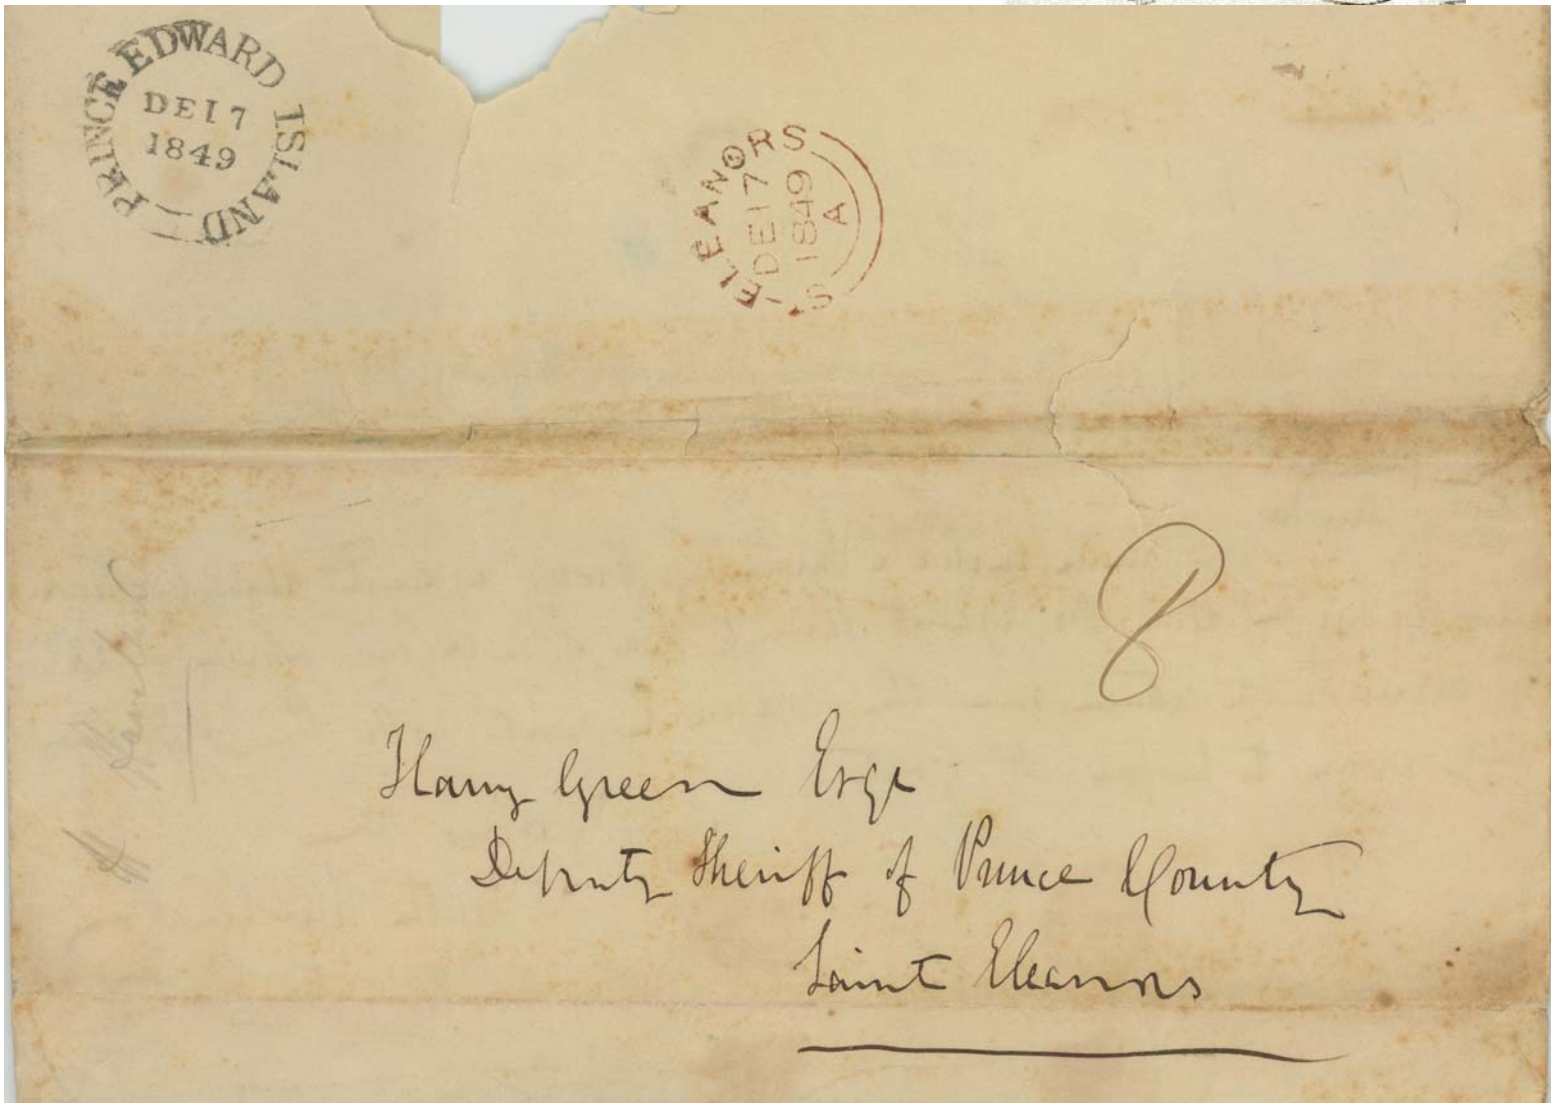 PRINCE EDWARD ISLAND
DE 17
1849
ST ELEANORS
DE 17
1849
A
8
Harry Green Esqe
Deputy Sheriff of Prince County
Saint Eleanors